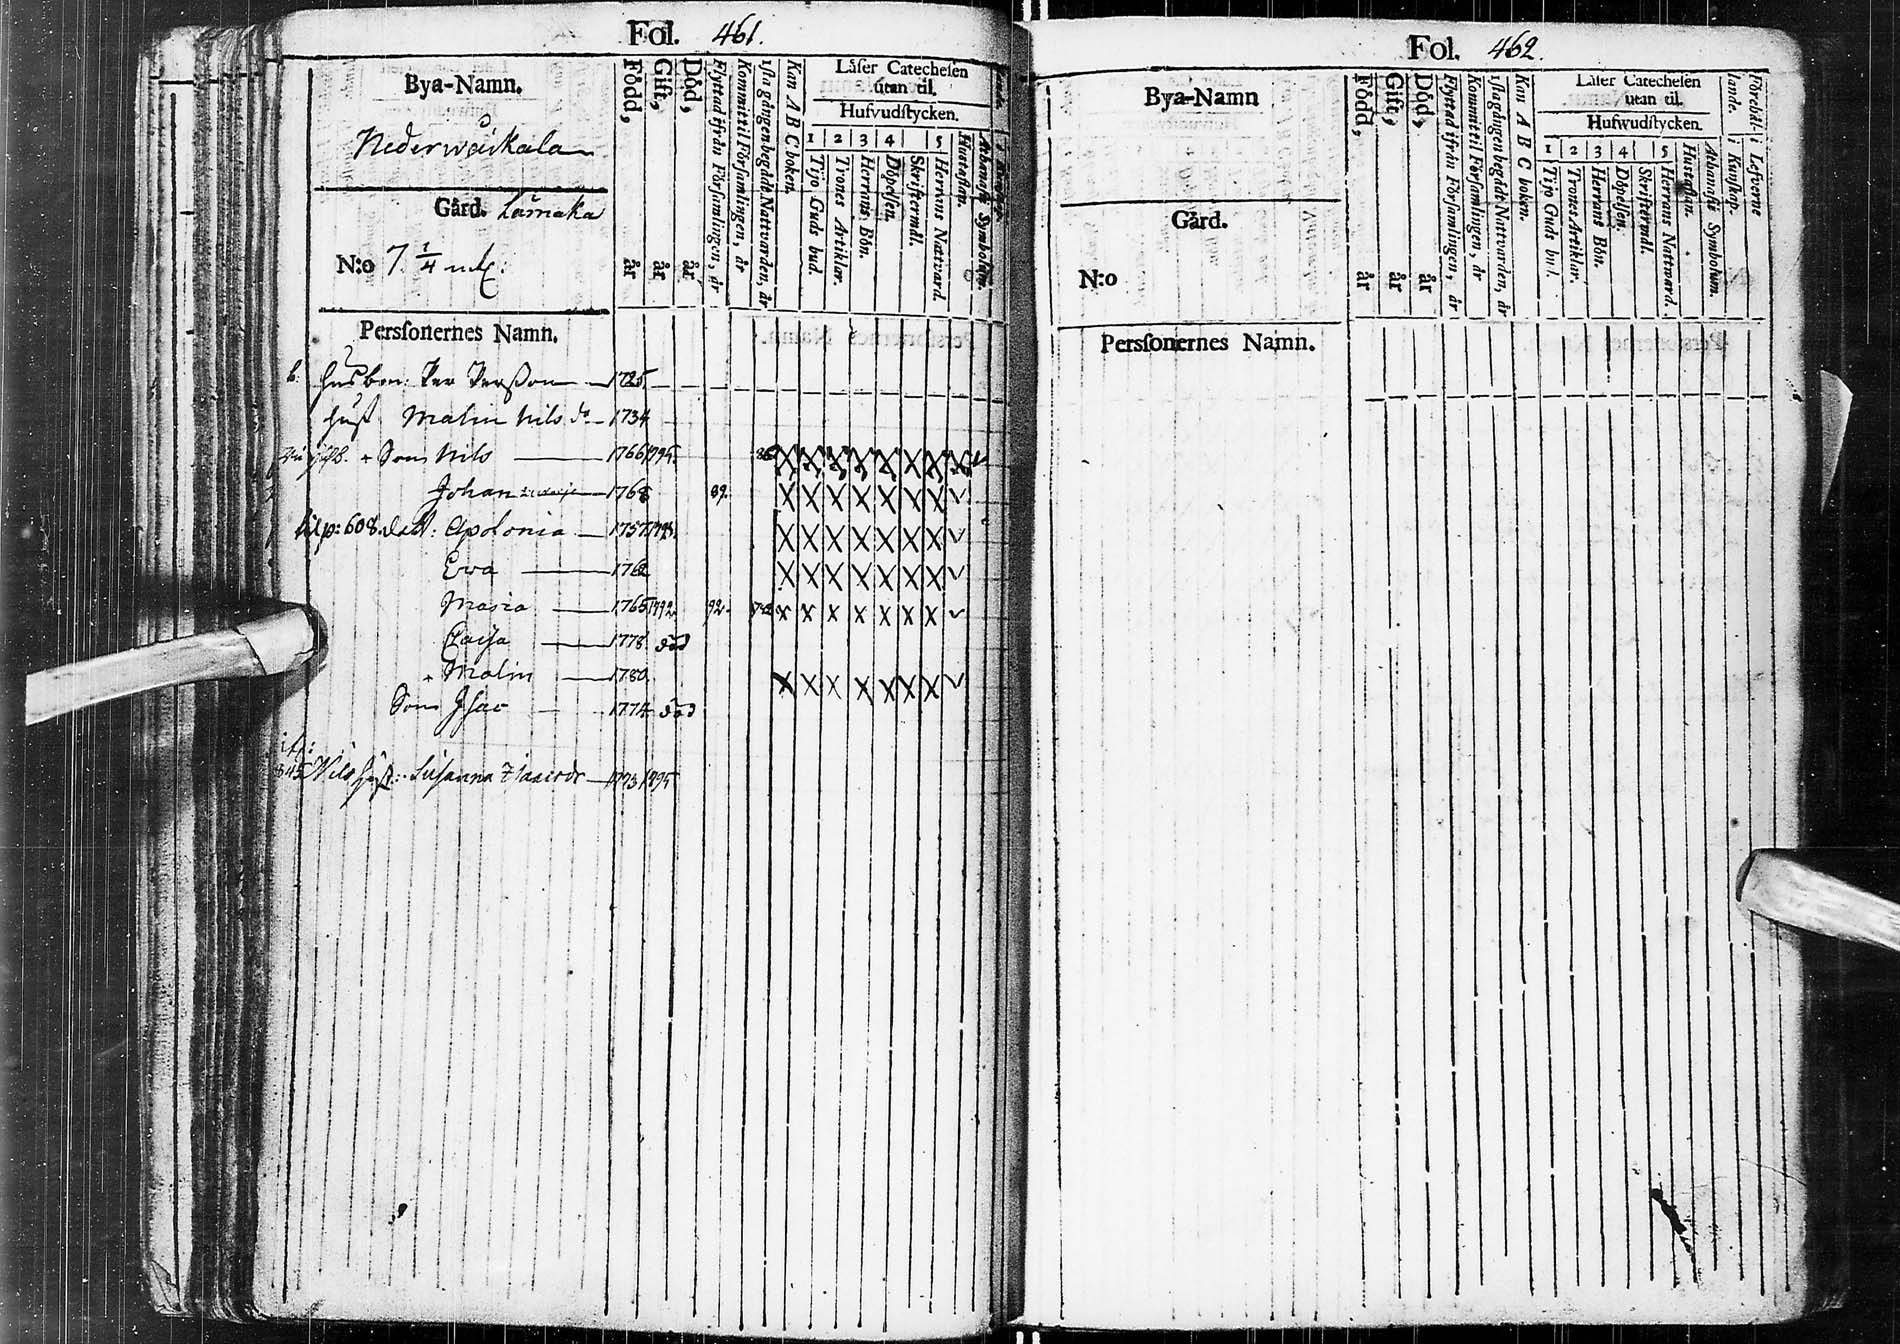 Fol. 461.
Bya-Namn.
Nederwäikala
Gård. Lamaka
N:o 7. 1/4 mtl:
Född, år
Gift, år
Död, år
Flyttad ifrån Församlingen, år
Kommit til Församlingen, år
1sta gången begådt Nattvarden, år
Kan A B C boken.
Läser Catechesen
utan til.
Hufvudstycken.
1 2 3 4 5
Tijo Guds bud.
Trones Artiklar.
Herrans Bön.
Döpelsen.
Skriftermål.
Herrans Nattvard.
Hustaflan.
Athanasii Symbolum.
Personernes Namn.
b. husbon: Per Persson 1725
hust Malin Nils dr 1734
+ Son Nils 1766 1795. 86
Johan 1768 89.
til p: 608. dott: Apolonia 1757 1793.
Ewa 1762
Maria 1765 1792. 92.
Caisa 1778. död
+ Malin 1780.
Son Isac 1774 död
Nils hust: Susanna 1773 1795
Fol. 462.
Bya-Namn
Gård.
N:o
Född, år
Gift, år
Död, år
Flyttad ifrån Församlingen, år
Kommit til Församlingen, år
1sta gången begådt Nattvarden, år
Kan A B C boken.
Läser Catechesen
utan til.
Hufwudstycken.
1 2 3 4 5
Tijo Guds bud.
Trones Artiklar.
Herrans Bön.
Döpelsen.
Skriftermål.
Herrans Nattward.
Hustaflan.
Athanasii Symbolum.
Förehållande.
i Kunskap.
i Lefverne
Personernes Namn.